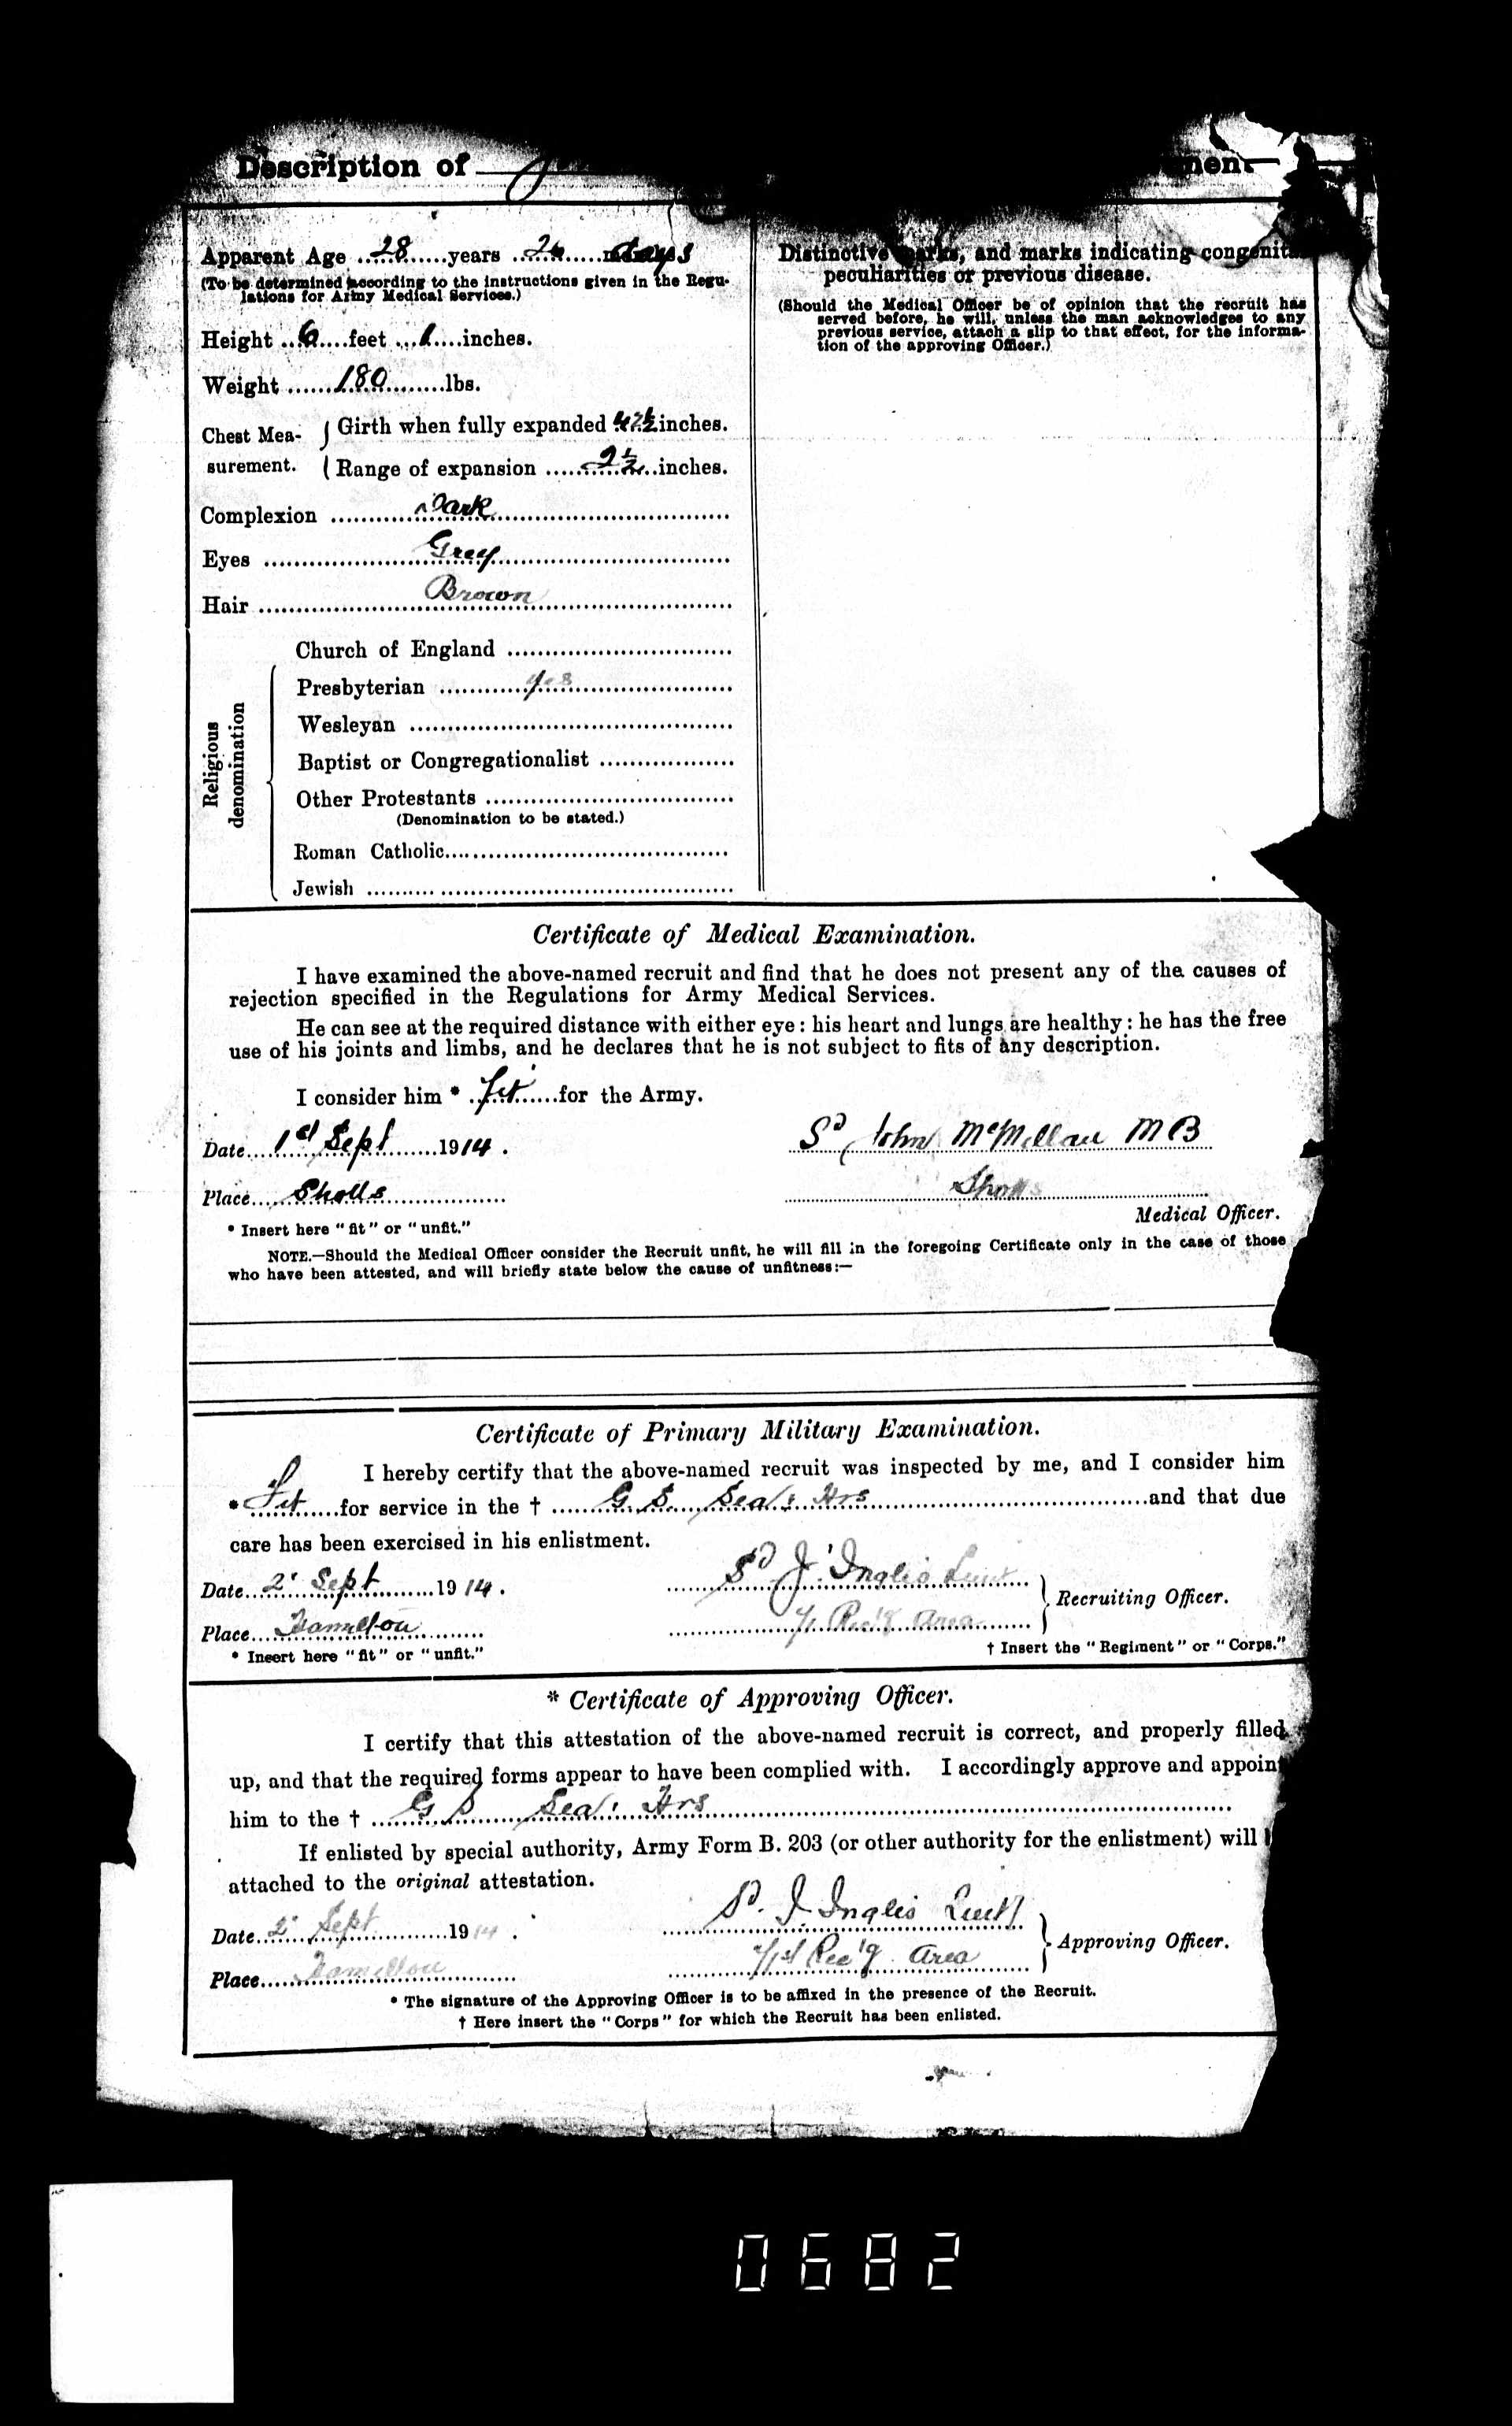 Description of
Apparent Age 28 years 26 days
(To be determined according to the instructions given in the Regu-
lations for Army Medical Services.)
Height 6 feet 1 inches.
Weight 180 lbs.
Chest Mea-
surement.
Girth when fully expanded inches.
Range of expansion 2½ inches.
Complexion Dark
Eyes Grey
Hair Brown
Religious
denomination
Church of England
Presbyterian yes
Wesleyan
Baptist or Congregationalist
Other Protestants
(Denomination to be stated.)
Roman Catholic
Jewish
Distinctive marks, and marks indicating
peculiarities or previous disease.
(Should the Medical Officer be of opinion that the recruit has
served before, he will, unless the man acknowledges to any
previous service, attach a slip to that effect, for the informa-
tion of the approving Officer.)
Certificate of Medical Examination.
I have examined the above-named recruit and find that he does not present any of the causes of
rejection specified in the Regulations for Army Medical Services.
He can see at the required distance with either eye: his heart and lungs are healthy: he has the free
use of his joints and limbs, and he declares that he is not subject to fits of any description.
I consider him * Fit for the Army.
Date 1st Sept 1914.
Sd John McMillan MB
Place Shotts
Shotts
Medical Officer.
* Insert here "fit" or "unfit."
NOTE.—Should the Medical Officer consider the Recruit unfit, he will fill in the foregoing Certificate only in the case of those
who have been attested, and will briefly state below the cause of unfitness:—
Certificate of Primary Military Examination.
I hereby certify that the above-named recruit was inspected by me, and I consider him
* Fit for service in the † G S Sea: Hrs and that due
care has been exercised in his enlistment.
Date 2 Sept 1914.
Sd J Inglis Lieut
Recruiting Officer.
Place Hamilton
Rec'g Area
* Insert here "fit" or "unfit."
† Insert the "Regiment" or "Corps."
* Certificate of Approving Officer.
I certify that this attestation of the above-named recruit is correct, and properly filled
up, and that the required forms appear to have been complied with. I accordingly approve and appoint
him to the † G S Sea: Hrs
If enlisted by special authority, Army Form B. 203 (or other authority for the enlistment) will
attached to the original attestation.
Date 2 Sept 1914.
Sd. J Inglis Lieut
Approving Officer.
Place Hamilton
Rec'g Area
* The signature of the Approving Officer is to be affixed in the presence of the Recruit.
† Here insert the "Corps" for which the Recruit has been enlisted.
0682